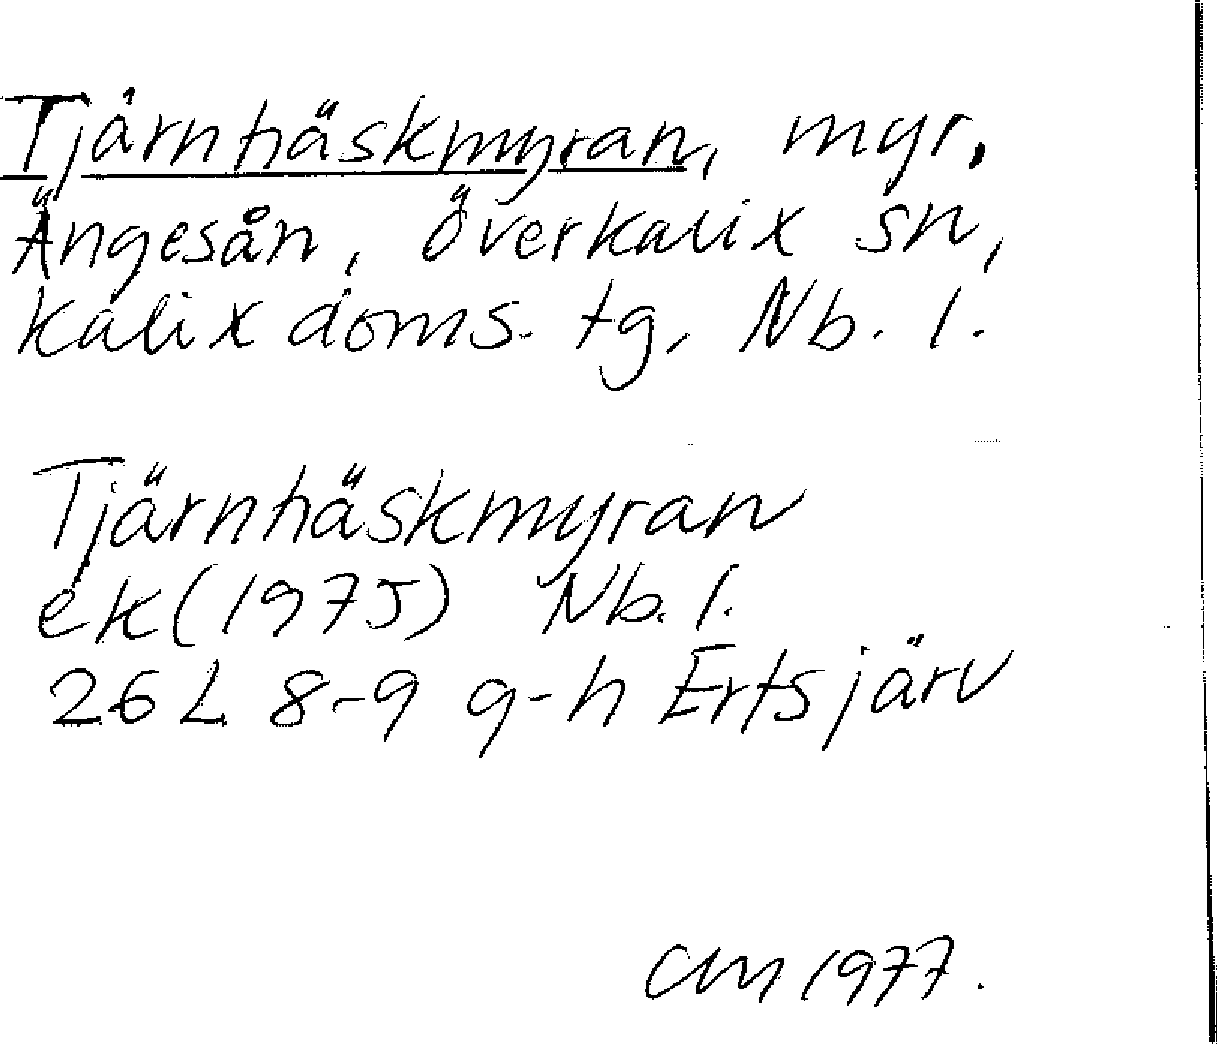 Tjärnhäskmyran, myr,
Ängesån, överkalix sn,
kalix doms. tg, Nb. l.
Tjärnhäskmyran
ek (1975) Nb. l.
26 L 8-9 g-h Ertsjärv
CM 1977.